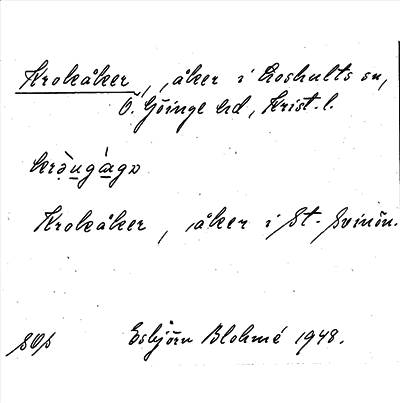 Krokåker, åker i Loshults sn,
Ö. Göinge hd, Krist. l.
Krokåker, åker i St. Svinön.
Esbjörn Blohmé 1948.